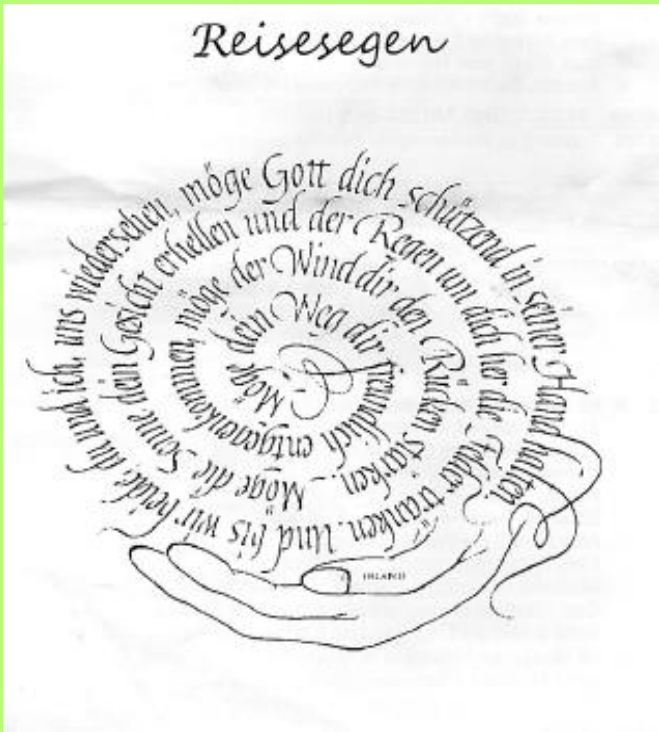 Reisesegen
Möge dein Weg dir freundlich entgegenkommen, möge der Wind dir den Rücken stärken. Möge die Sonne dein Gesicht erhellen und der Regen um dich her die Felder tränken. Und bis wir beide, du und ich, uns wiedersehen, möge Gott dich schützend in seiner Hand halten.
IRLAND